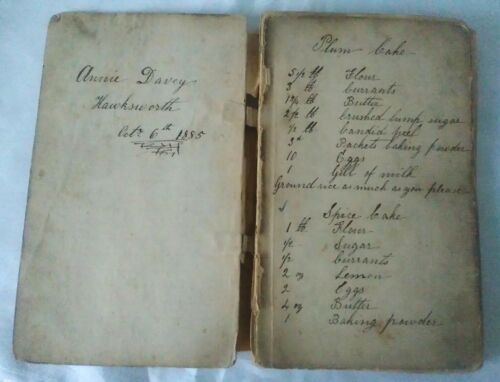 Annie Davey
Hawksworth
Octr 6th 1885
Plum Cake
lb Flour
3 lb Currants
lb Butter
lb Crushed lump sugar
1/2 lb Candid peel
3d Packets baking powder
10 Eggs
1 Gill of milk
Ground rice as much as you please
Spice Cake
1 lb Flour
1/2 Sugar
1/2 Currants
2 oz Lemon
2 Eggs
4 oz Butter
1 Baking powder